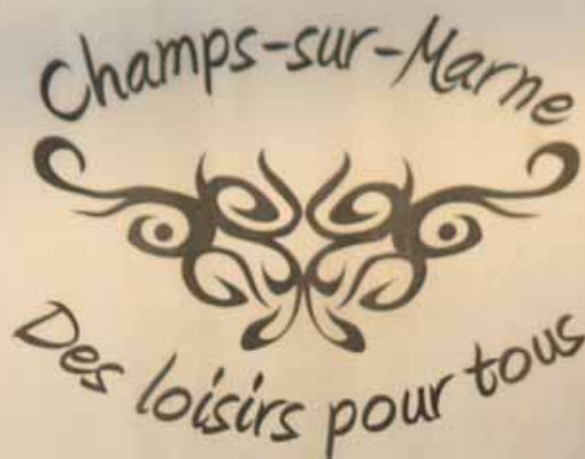 Champs-sur-Marne
Des loisirs pour tous